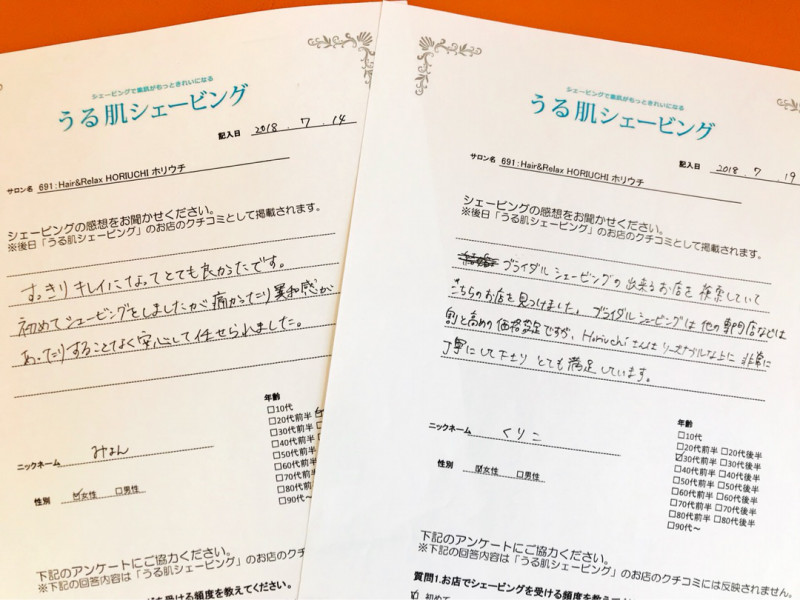 シェービングで素肌がもっときれいになる
うる肌シェービング
記入日 2018 . 7 . 14
サロン名 691:Hair&Relax HORIUCHI ホリウチ
シェービングの感想をお聞かせください。
※後日「うる肌シェービング」のお店のクチコミとして掲載されます。
すっきりキレイになってとても良かったです。
初めてシェービングをしましたが痛かったり異和感が
あったりすることなく安心して任せられました。
ニックネーム みょん
性別 ☑女性 □男性
年齢
□10代
□20代前半
□30代前半
□40代前半
□50代前半
□60代前半
□70代前半
□80代前半
□90代~
下記のアンケートにご協力ください。
※下記の回答内容は「うる肌シェービング」のお店のクチコ
シェービングを受ける頻度を教えてください。
シェービングで素肌がもっときれいになる
うる肌シェービング
記入日 2018 . 7 . 19
サロン名 691:Hair&Relax HORIUCHI ホリウチ
シェービングの感想をお聞かせください。
※後日「うる肌シェービング」のお店のクチコミとして掲載されます。
ブライダルシェービングの出来るお店を検索していて
こちらのお店を見つけました。ブライダルシェービングは他の専門店などは
割と高めの価格設定ですが、Horiuchiさんはリーズナブルな上に非常に
丁寧にして下さり とても満足しています。
ニックネーム くりこ
性別 ☑女性 □男性
年齢
□10代
□20代前半 □20代後半
☑30代前半 □30代後半
□40代前半 □40代後半
□50代前半 □50代後半
□60代前半 □60代後半
□70代前半 □70代後半
□80代前半 □80代後半
□90代~
下記のアンケートにご協力ください。
※下記の回答内容は「うる肌シェービング」のお店のクチコミには反映されません。
質問1.お店でシェービングを受ける頻度を教えてください。
☑ 初めて